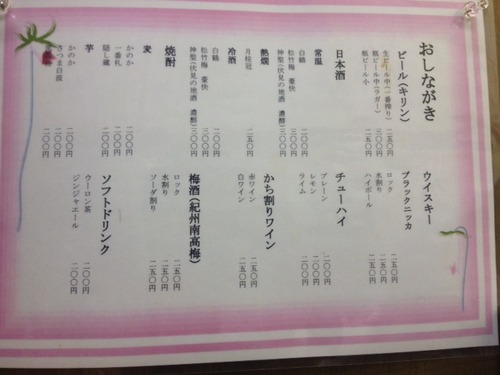 おしながき
ビール（キリン）
生ビール中（一番搾り） 二五〇円
瓶ビール中（ラガー） 三〇〇円
瓶ビール小 二五〇円
日本酒
常温
白鶴 二〇〇円
松竹梅 豪快 三〇〇円
神聖（伏見の地酒 濃醇）三〇〇円
熱燗
月桂冠 二五〇円
冷酒
白鶴 二〇〇円
松竹梅 豪快 三〇〇円
神聖（伏見の地酒 濃醇）三〇〇円
焼酎
麦
かのか 二〇〇円
一番札 二〇〇円
隠し蔵 二〇〇円
芋
かのか 二〇〇円
二〇〇円
さつま白波 二〇〇円
ウイスキー
ブラックニッカ
ロック 二五〇円
水割り 二五〇円
ハイボール 二五〇円
チューハイ
プレーン 二〇〇円
レモン 二〇〇円
ライム 二〇〇円
かち割りワイン
赤ワイン 二五〇円
白ワイン 二五〇円
梅酒（紀州南高梅）
ロック 二五〇円
水割り 二五〇円
ソーダ割り 二五〇円
ソフトドリンク
ウーロン茶 二〇〇円
ジンジャエール 二〇〇円